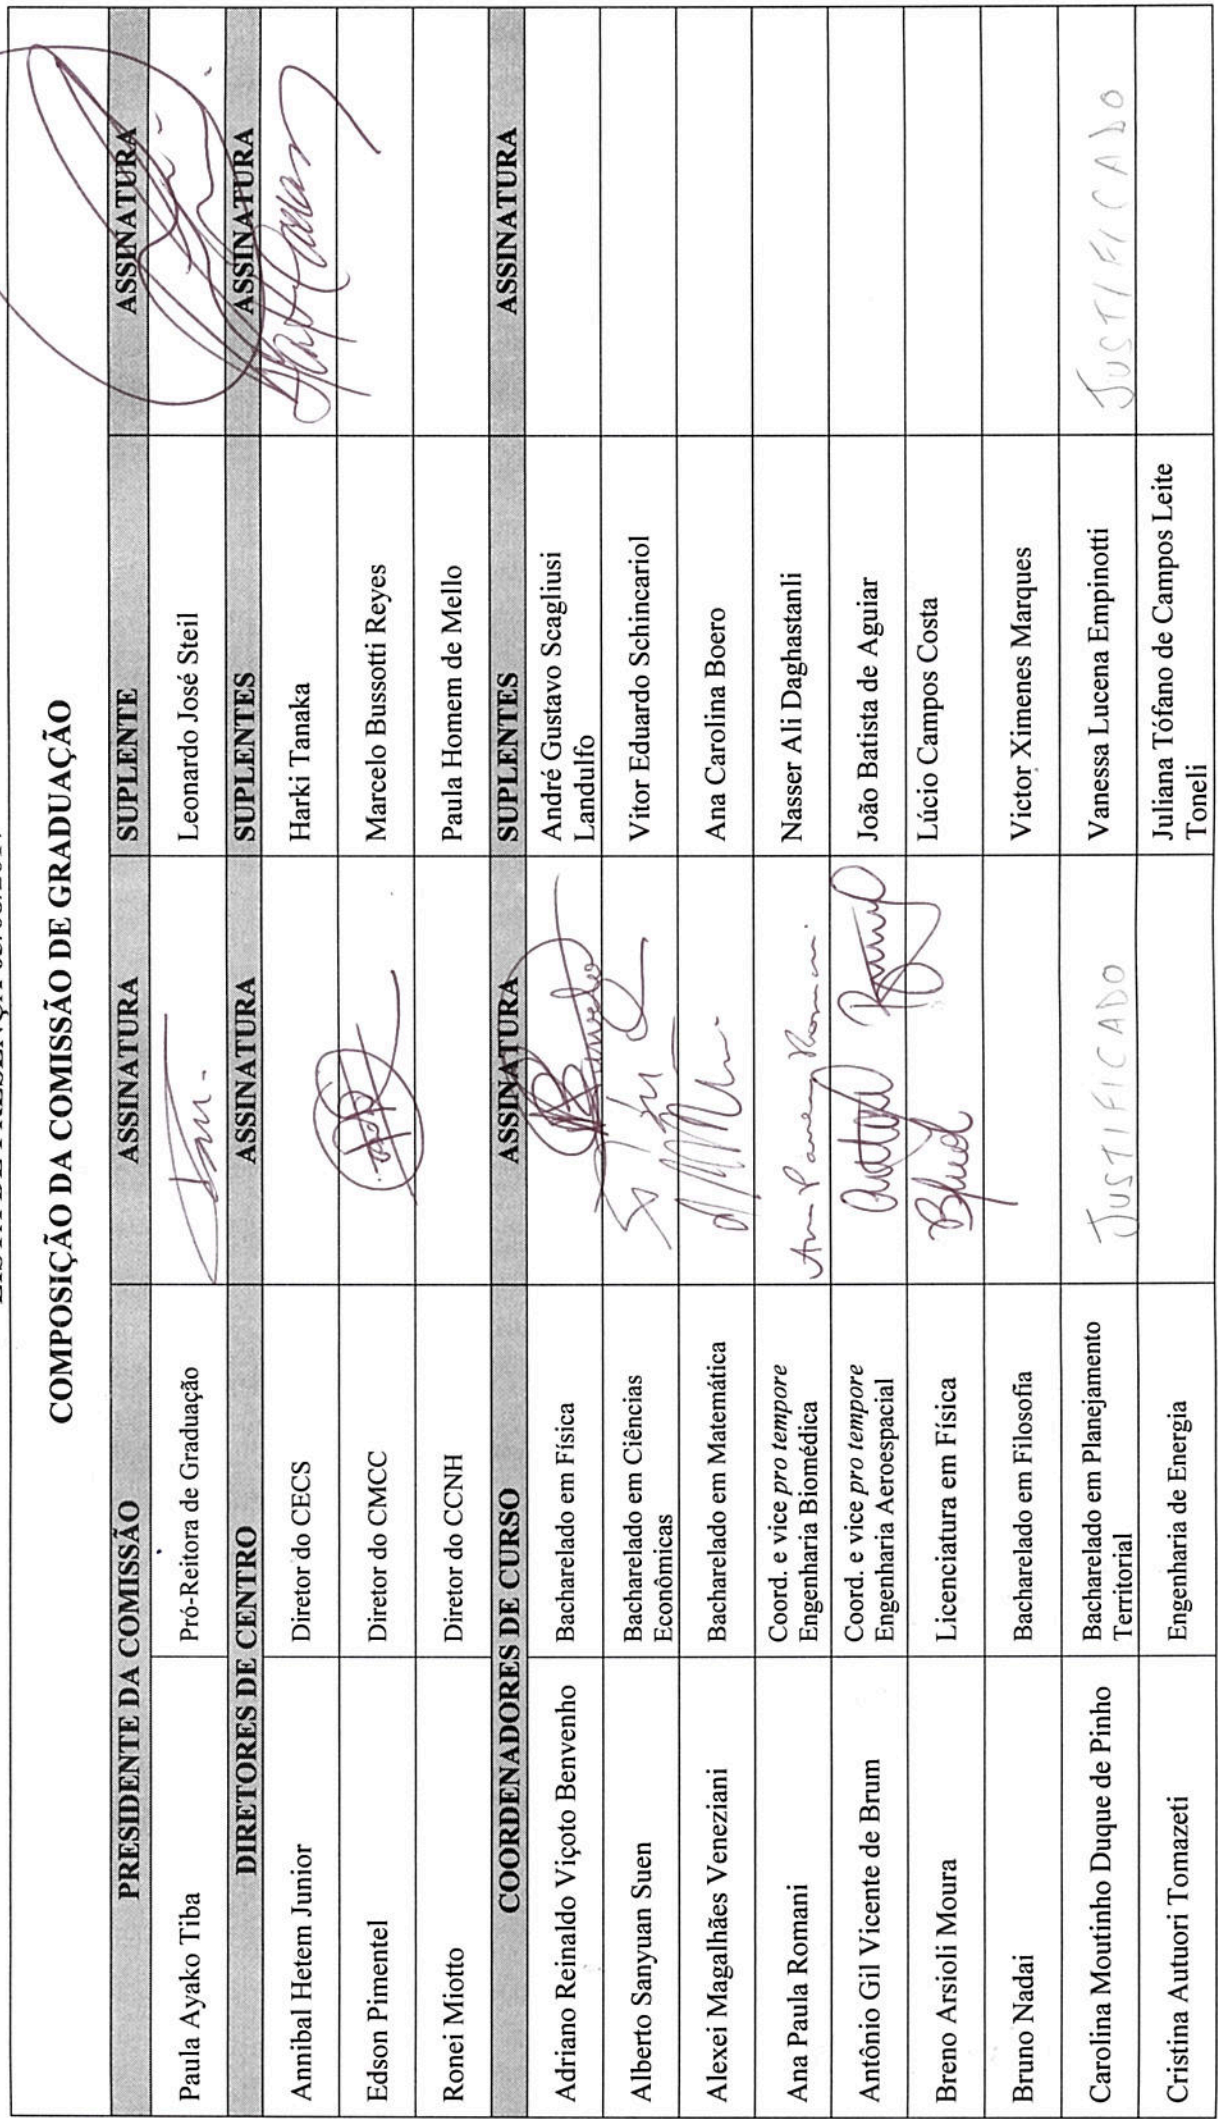 COMPOSIÇÃO DA COMISSÃO DE GRADUAÇÃO
PRESIDENTE DA COMISSÃO ASSINATURA SUPLENTE ASSINATURA
Paula Ayako Tiba Pró-Reitora de Graduação Leonardo José Steil
DIRETORES DE CENTRO ASSINATURA SUPLENTES ASSINATURA
Annibal Hetem Junior Diretor do CECS Harki Tanaka
Edson Pimentel Diretor do CMCC Marcelo Bussotti Reyes
Ronei Miotto Diretor do CCNH Paula Homem de Mello
COORDENADORES DE CURSO ASSINATURA SUPLENTES ASSINATURA
Adriano Reinaldo Viçoto Benvenho Bacharelado em Física André Gustavo Scagliusi
Landulfo
Alberto Sanyuan Suen Bacharelado em Ciências
Econômicas Vitor Eduardo Schincariol
Alexei Magalhães Veneziani Bacharelado em Matemática Ana Carolina Boero
Ana Paula Romani Coord. e vice pro tempore
Engenharia Biomédica Nasser Ali Daghastanli
Antônio Gil Vicente de Brum Coord. e vice pro tempore
Engenharia Aeroespacial João Batista de Aguiar
Breno Arsioli Moura Licenciatura em Física Lúcio Campos Costa
Bruno Nadai Bacharelado em Filosofia Victor Ximenes Marques
Carolina Moutinho Duque de Pinho Bacharelado em Planejamento
Territorial JUSTIFICADO Vanessa Lucena Empinotti JUSTIFICADO
Cristina Autuori Tomazeti Engenharia de Energia Juliana Tófano de Campos Leite
Toneli